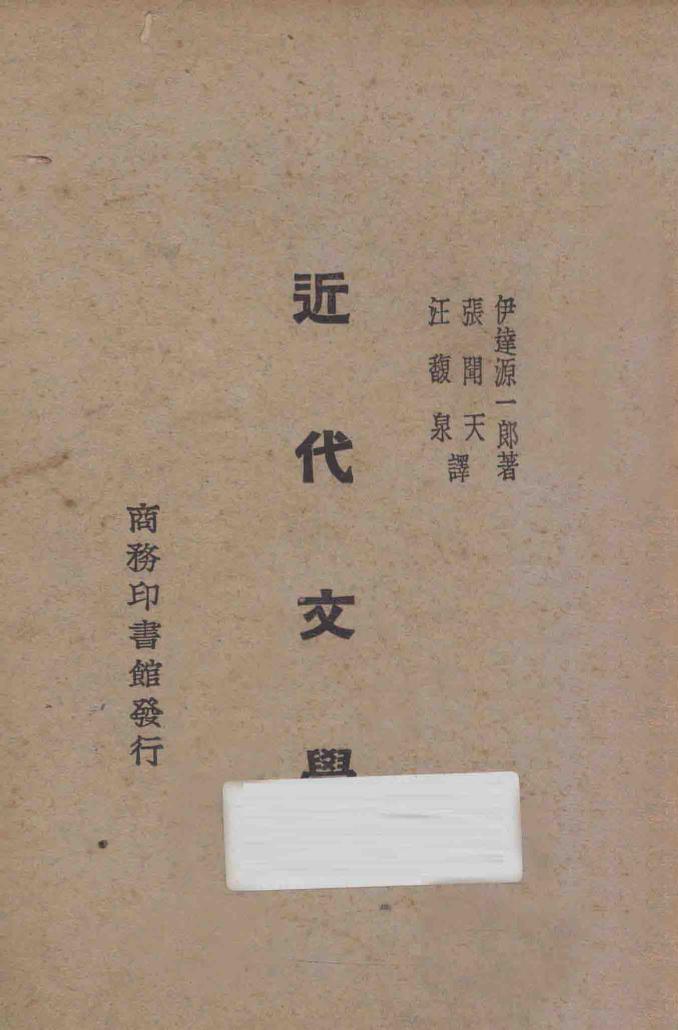 伊達源一郎著
張聞天
汪馥泉
譯
近代文學
商務印書館發行